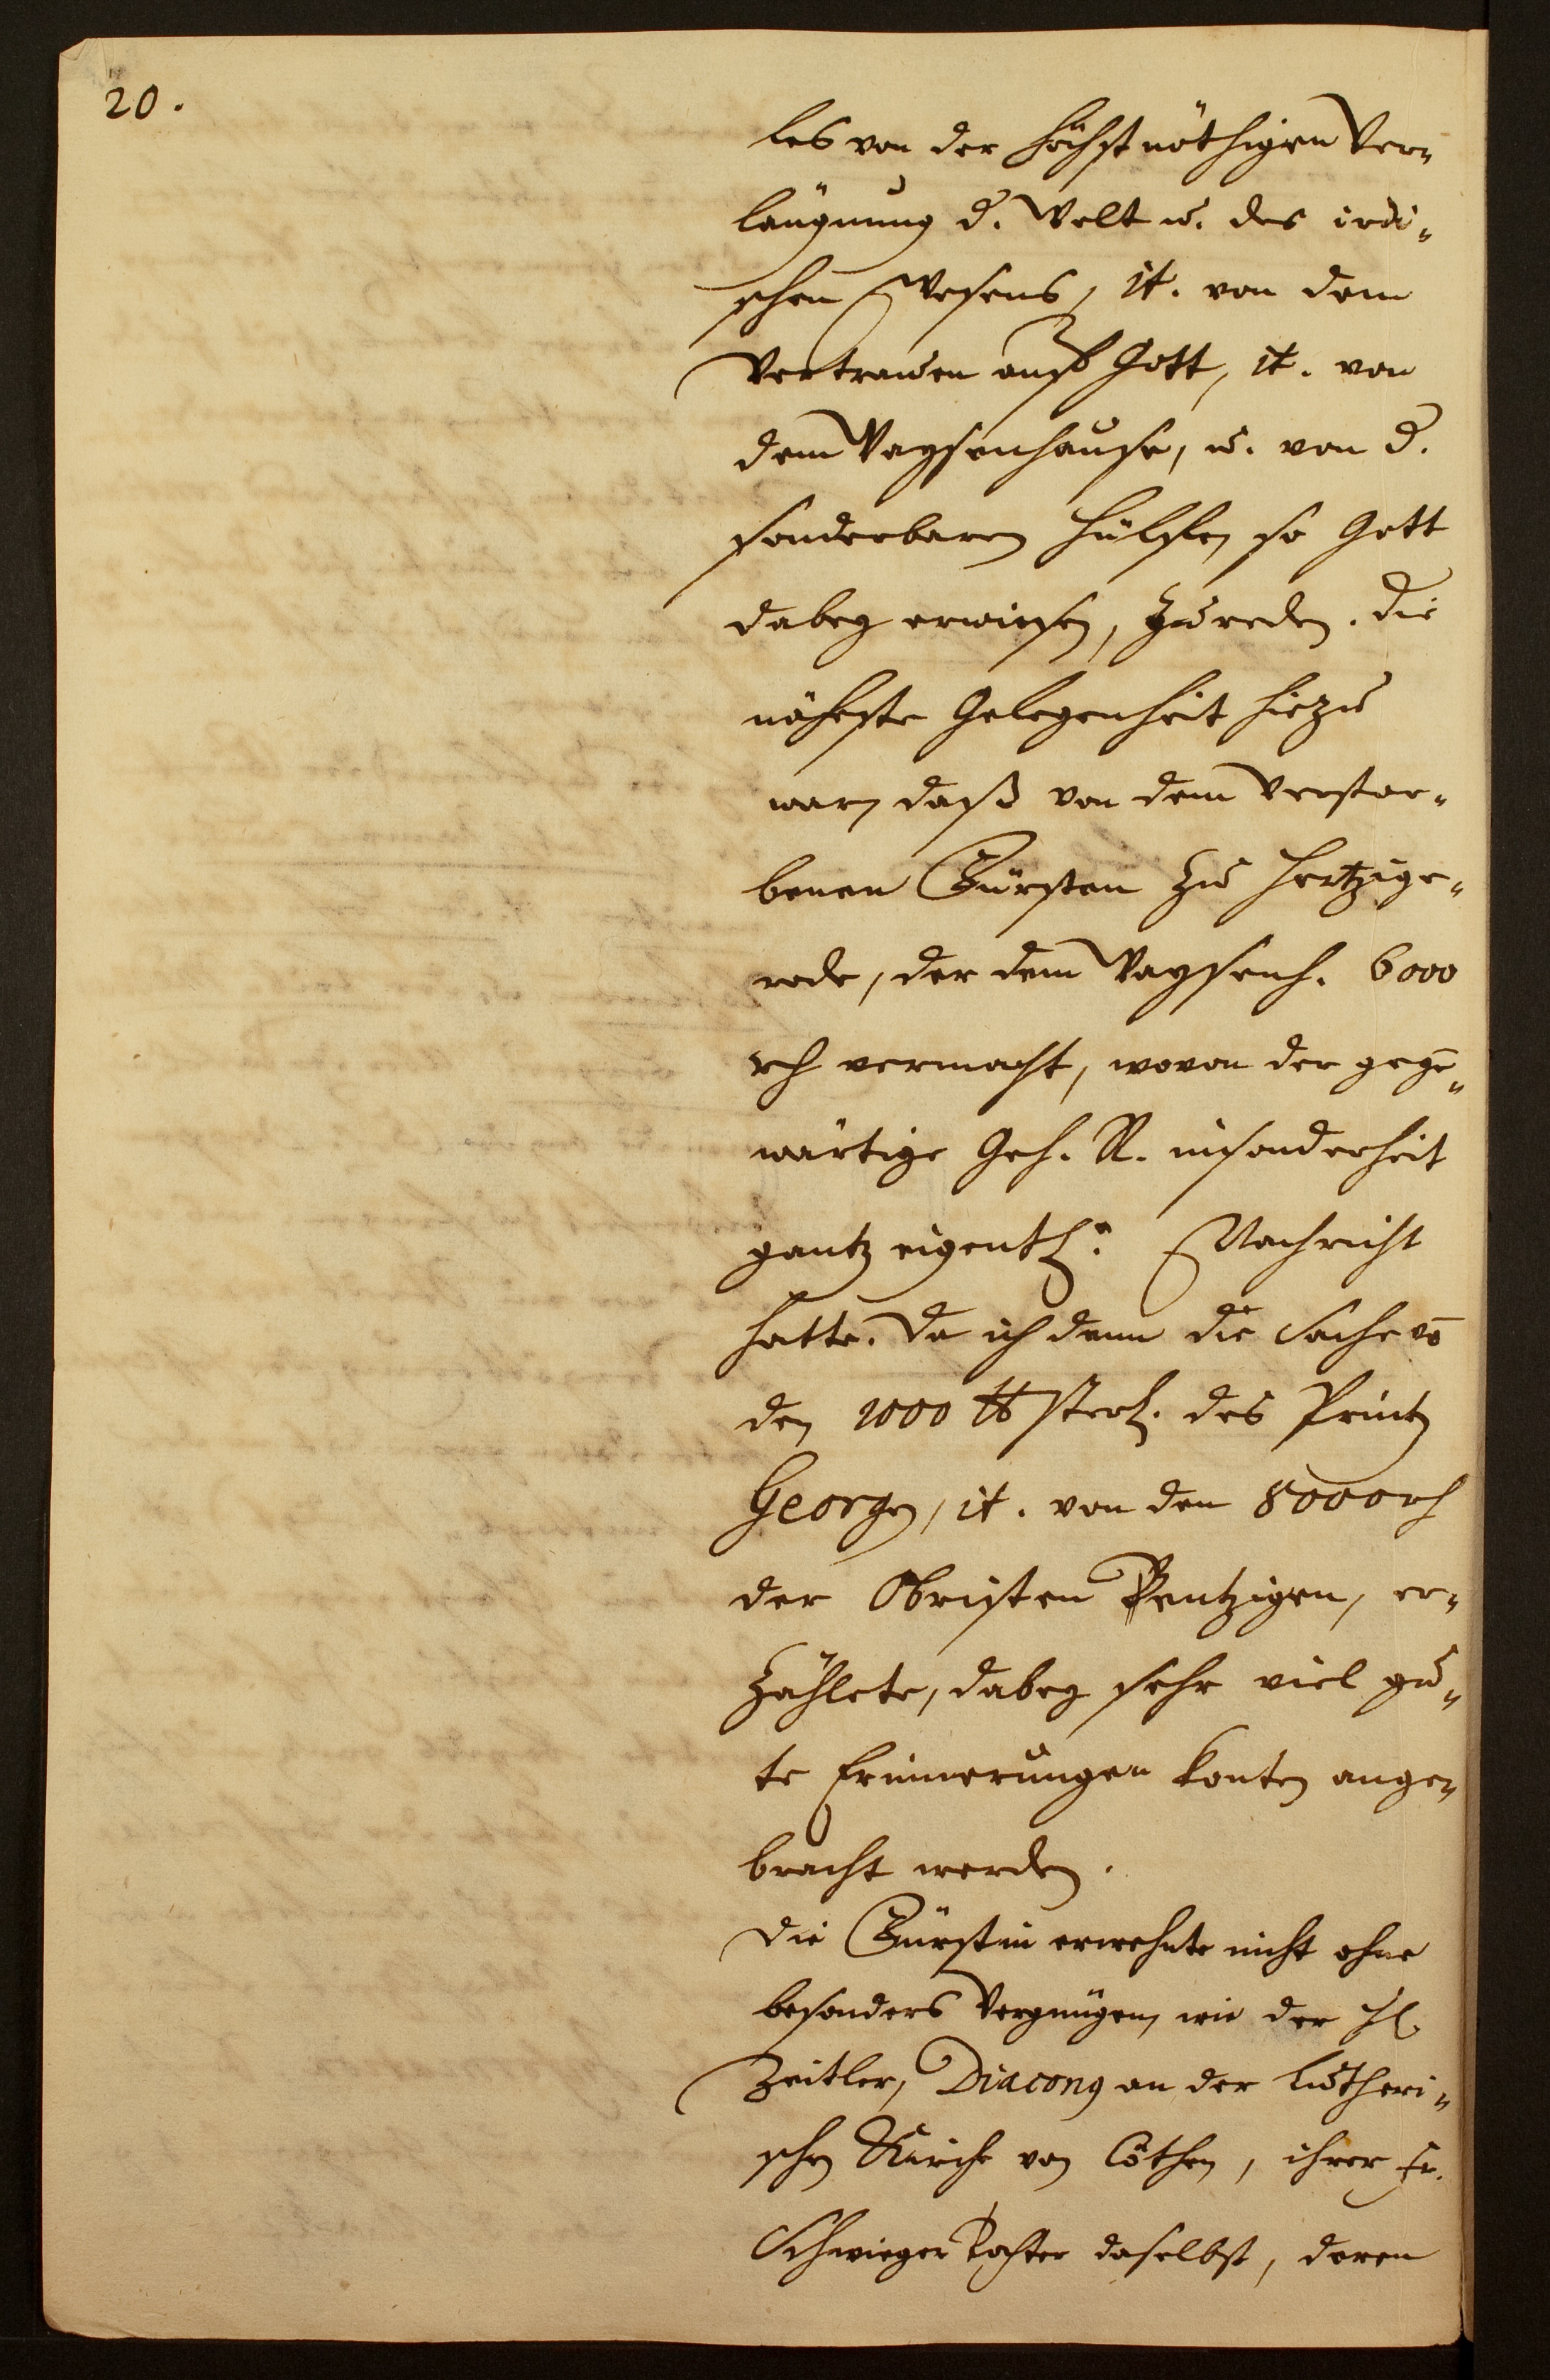 20.
les von der höchstnöthigen Ver-
läugnung d. Welt u. des irdi-
schen Wesens, it. von dem
Vertrauen auf Gott, it. von
dem Waysenhause, u. von d.
sonderbaren Hülffen so Gott
dabey erwiesen, zu reden. Die
nächste Gelegenheit hiezu
war, daß von dem verstor-
benen Fürsten zu Hertzige-
rode, der dem Waysenh. 6000
rh vermacht, wovon der gege-
wärtige Geh. R. insonderheit
gantz eigentl. Nachricht
hatte. Da ich denn die Sache vō
den 1000 ℔ Sterl. des Printz
Georgen, it. von den 8000 rh
der Obristen Pentzigen, er-
zählete, dabey sehr viel gu-
te Erinnerungen konten ange-
bracht werden.
Die Fürstin erwehnte nicht ohne
besonders Vergnügen, wie der H.
Zeitler, Diaconus an der Lutheri-
schen Kirche von Cöthen, ihrer Fr.
Schwieger Tochter daselbst, deren